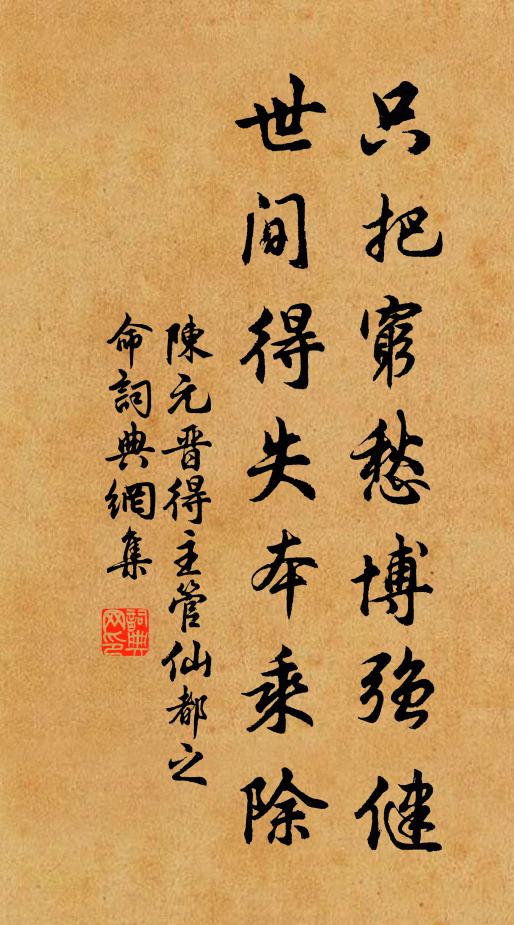 只把窮愁博強健
世間得失本乘除
陳元晉得主管仙都之
命詞典網集
詞典
网印